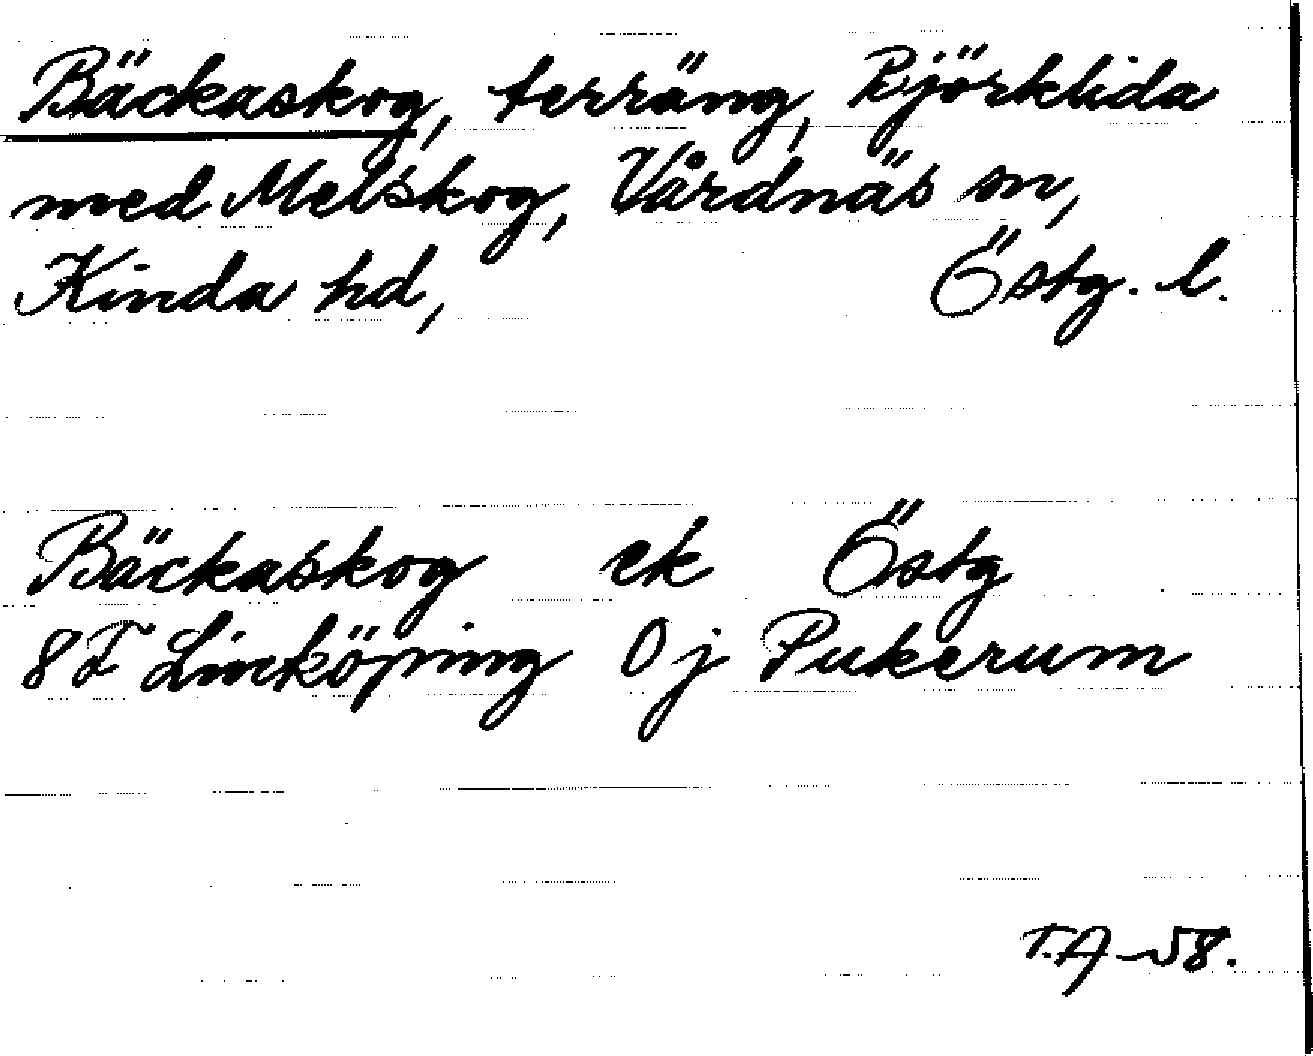 Bäckaskog, terräng, Björklida
med Melskog, Vårdnäs sn,
Kinda hd, Östg. l.
Bäckaskog ek Östg
8F Linköping 0j Pukerum
T.A -58.